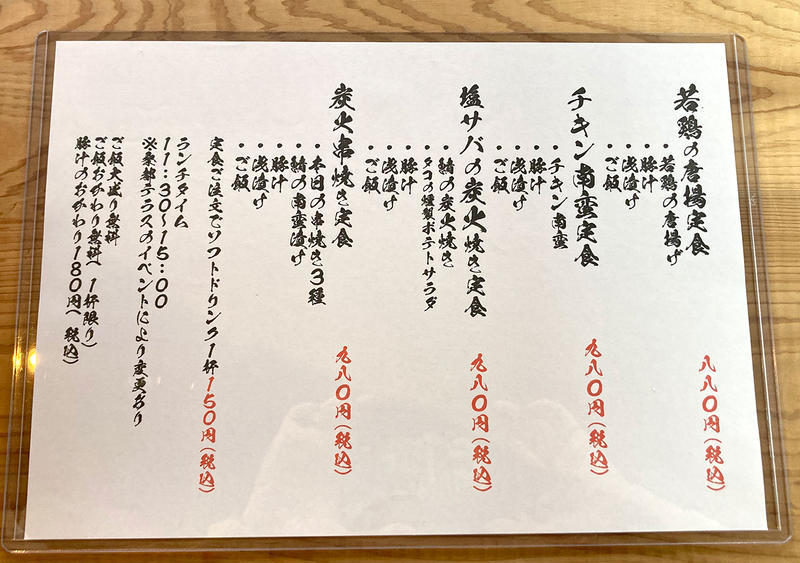 若鶏の唐揚定食
・若鶏の唐揚げ
・豚汁
・浅漬け
・ご飯
八八〇円(税込)
チキン南蛮定食
・チキン南蛮
・豚汁
・浅漬け
・ご飯
九八〇円(税込)
塩サバの炭火焼き定食
・鯖の炭火焼き
・タコの燻製ポテトサラダ
・豚汁
・浅漬け
・ご飯
九八〇円(税込)
炭火串焼き定食
・本日の串焼き3種
・鯖の南蛮漬け
・豚汁
・浅漬け
・ご飯
九八〇円(税込)
定食ご注文でソフトドリンク1杯150円(税込)
ランチタイム
11:30〜15:00
※桑都テラスのイベントにより変更あり
ご飯大盛り無料
ご飯おかわり無料(1杯限り)
豚汁のおかわり180円(税込)